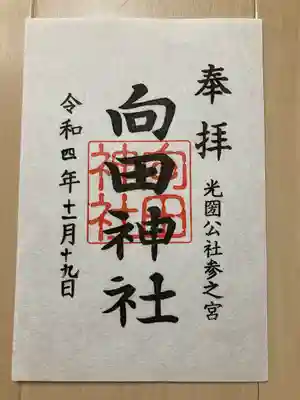 奉拝
光圀公社参之宮
向田神社
向田神社
令和四年十一月十九日